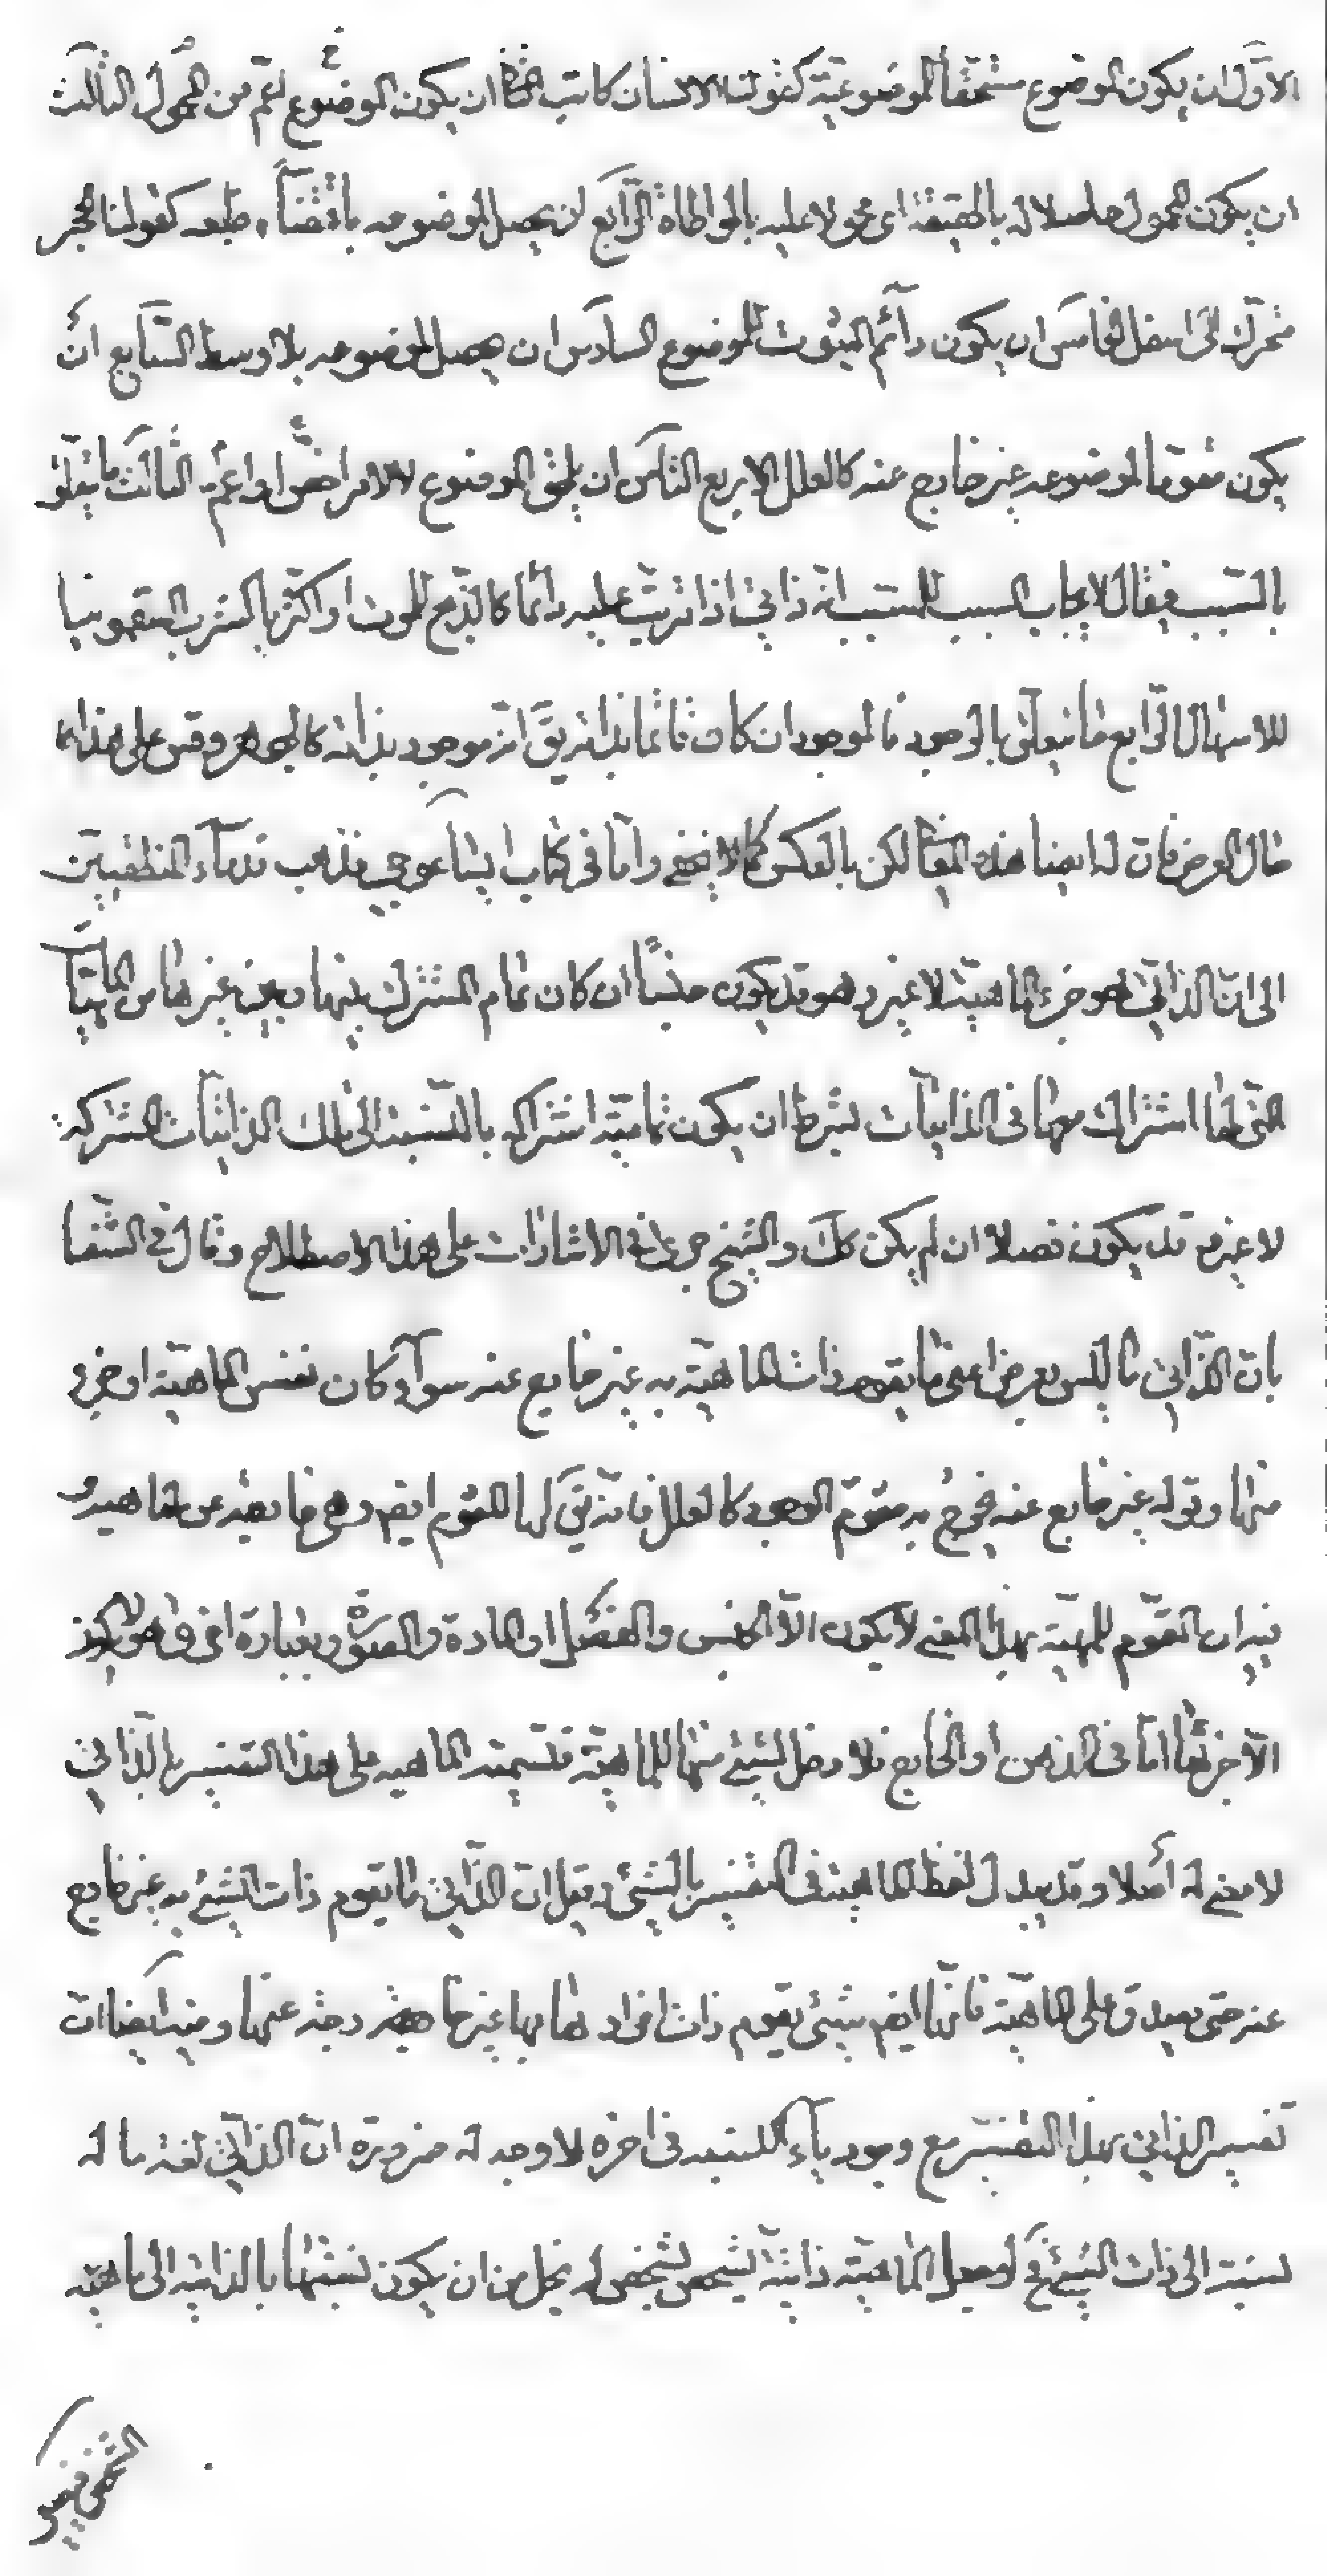 الاوّل ان يكون الموضوع مستحقّاً للموضوعيّة كقولنا الانسان كاتب الثّا ان يكون الموضوع اعمّ من المحمول الثالث
ان يكون المحمول حاصلا له بالحقيقة اى محمولا عليه بالمواطاة الرّابع ان يحصل لموضوعه باقتضآء طبعه كقولنا الحجر
متحرّك الى اسفل الخامس ان يكون دآئم الثبوت للموضوع السادس ان يحصل لموضوعه بلا وسط السّابع ان
يكون مقوّما لموضوعه غير خارج عنه كالعلل الاربع الثامن ان يلحق الموضوع لا لامر اخصّ او اعمّ الثالث ما يتعلّق
بالسّبب فيقال لايجاب السبب للمسبب انّه ذاتىّ اذا ترتّب عليه دائما كالذّبح للموت او اكثريا كشرب السقمونيا
للاسهال الرّابع ما يتعلّق بالوجود فالموجود ان كان قائما بذاته يقّ انّه موجود بذاته كالجوهر وقس على هذا
حال العرض فان له ايضا هذه المعا لكن بالعكس كما لا يخفى وامّا فى كتاب ايساغوجى فذهب قدمآء المنطقيين
الى انّ الذاتىّ هو جزء الماهيّة لا غير وهو قد يكون جنسًا ان كان تمام المشترك بينها وبين غيرها من الماهيّا
التى لها اشتراك معها فى الذاتيات بشرط ان يكون تماميّة اشتراكه بالنسبة الى تلك الذاتيّات المشتركه
لا غير وقد يكون فصلا ان لم يكن كك والشيخ جرى فى الاشارات على هذا الاصطلاح وقال فى الشّفا
بانّ الذّاتى ما ليس بعرض اعنى ما يتقوم ذات الماهيّة به غير خارج عنه سوآء كان نفس الماهيّة او جزء
منها وقوله غير خارج عنه يخرج به مقوّم الوجود كالعلل فانّه يقّ لها المقوّم ايضم وهى خارجة عن الماهيه و
فيه ان المقوّم للمهيّة بهذا المعنى لا يكون الّا الجنس والفصل او المادة والصورة وبعبارة اخرى هو لا يكون
الّا جزئها امّا فى الذهن او الخارج فلا دخل لشيئ منها للماهيّة فتسمية الماهيه على هذا التفسير بالذّاتى
لا معنى له أصلا وقد يبدل لفظ الماهيّة فى التفسير بالشيئ ويقل ان الذّاتى ما يتقوم ذات الشيئ به غير خارج
عنه حتى يصدق على الماهيّة فانّها ايضم شيئ يتقوم ذات افرادها بها غير خارجة عنها وفيه ايضا ان
تفسير الذاتى بهذا التفسير مع وجود يآء النسبه فى اخره لا وجه له ضرورة انّ الذاتىّ لغة ما له
نسبة الى ذات الشيئ فح لو جعل الماهيّة ذاتيّة لشخص شخص لم يخل من ان يكون نسبتها بالذاتيه الى ماهيّه
الشخص فيصير